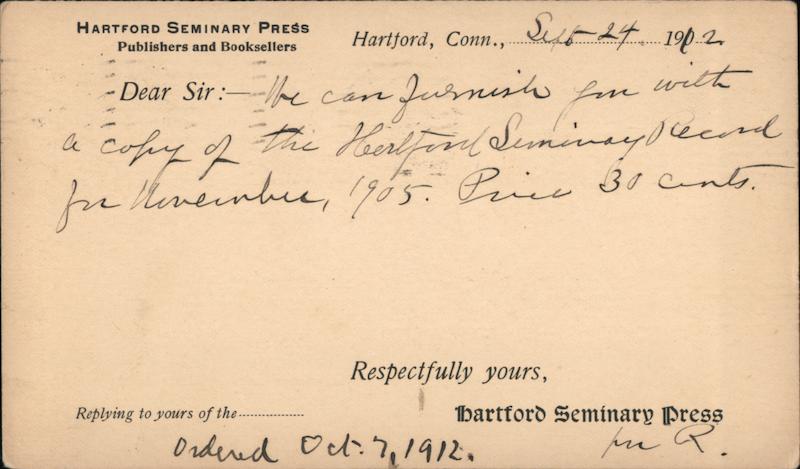 HARTFORD SEMINARY PRESS
Publishers and Booksellers
Hartford, Conn., Sept 24 1912
Dear Sir:— We can furnish you with
a copy of the Hartford Seminary Record
for November, 1905. Price 30 cents.
Respectfully yours,
Replying to yours of the
Hartford Seminary Press
per R.
Ordered Oct. 7, 1912.